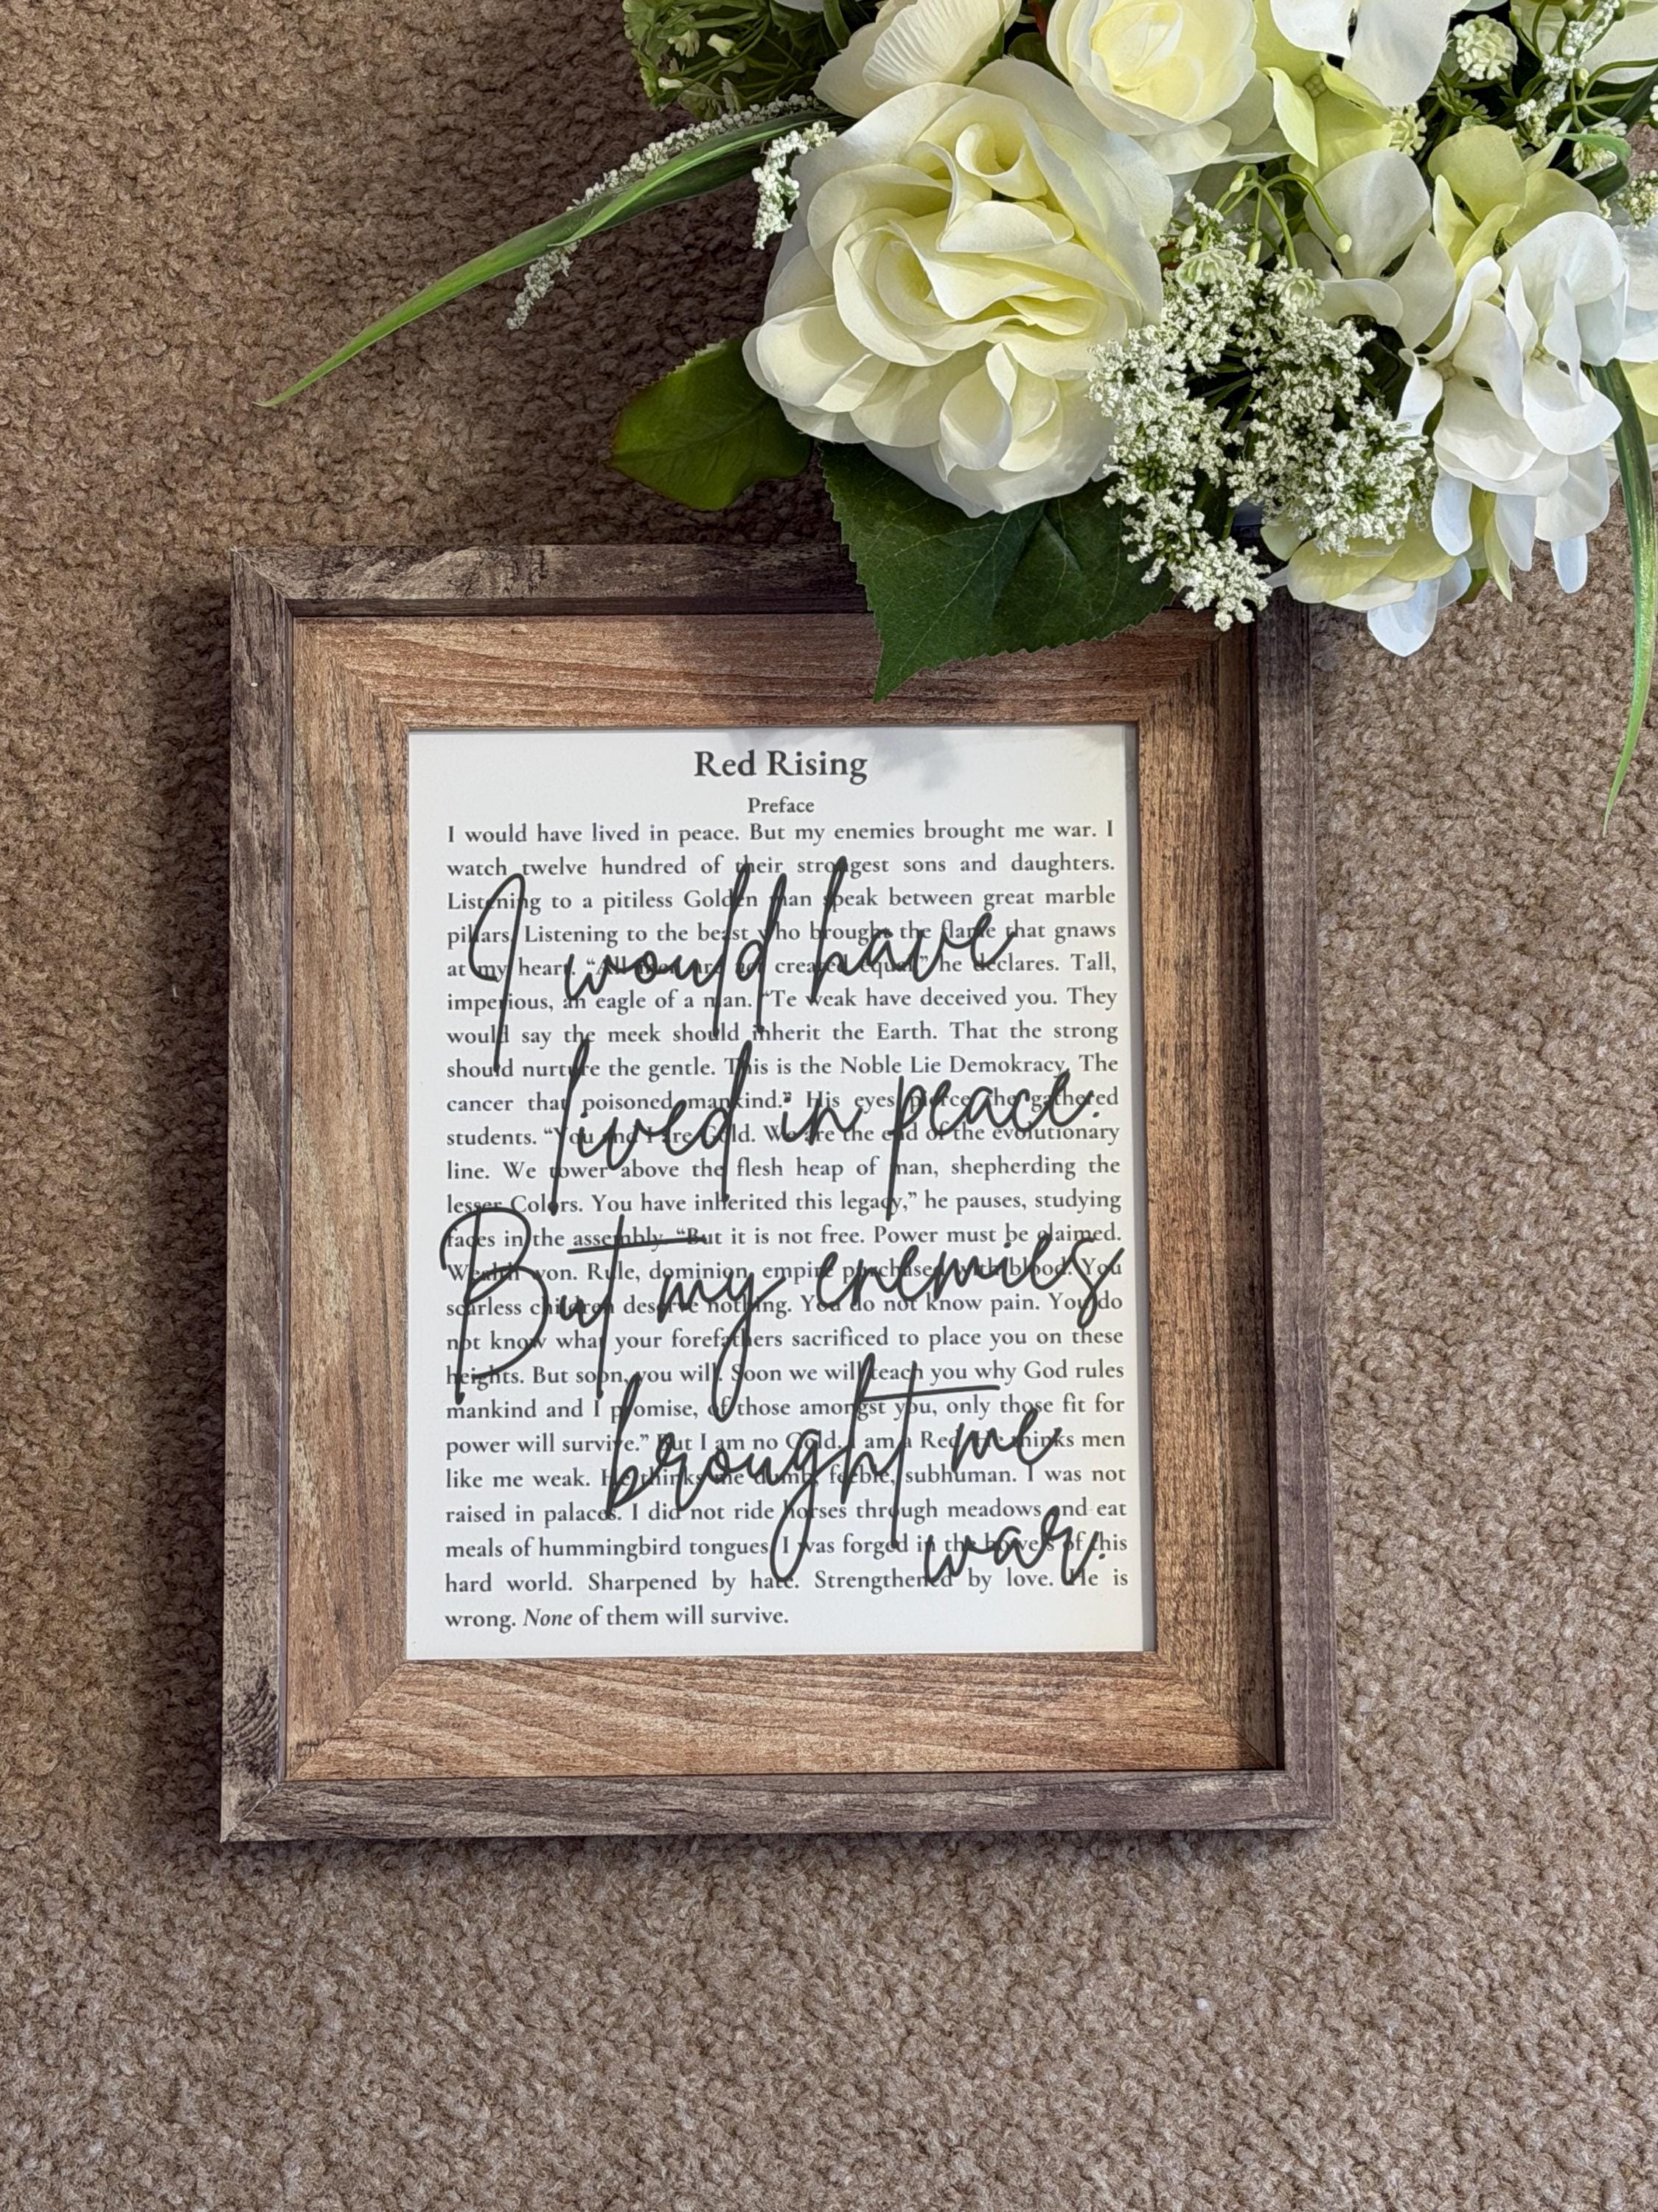 Red Rising
Preface
I would have lived in peace. But my enemies brought me war. I
watch twelve hundred of their strongest sons and daughters.
Listening to a pitiless Golden man speak between great marble
pillars. Listening to the beast who brought the flame that gnaws
at my heart. “All men are not created equal,” he declares. Tall,
imperious, an eagle of a man. “Te weak have deceived you. They
would say the meek should inherit the Earth. That the strong
should nurture the gentle. This is the Noble Lie Demokracy. The
cancer that poisoned mankind.” His eyes pierce the gathered
students. “You and I are Gold. We are the end of the evolutionary
line. We tower above the flesh heap of man, shepherding the
lesser Colors. You have inherited this legacy,” he pauses, studying
faces in the assembly. “But it is not free. Power must be claimed.
Wealth won. Rule, dominion, empire purchased with blood. You
scarless children deserve nothing. You do not know pain. You do
not know what your forefathers sacrificed to place you on these
heights. But soon, you will. Soon we will teach you why God rules
mankind and I promise, of those amongst you, only those fit for
power will survive.” But I am no Gold. I am a Red. He thinks men
like me weak. He thinks me dumb, feeble, subhuman. I was not
raised in palaces. I did not ride horses through meadows and eat
meals of hummingbird tongues. I was forged in the bowels of this
hard world. Sharpened by hate. Strengthened by love. He is
wrong. None of them will survive.
I would have
lived in peace.
But my enemies
brought me
war.